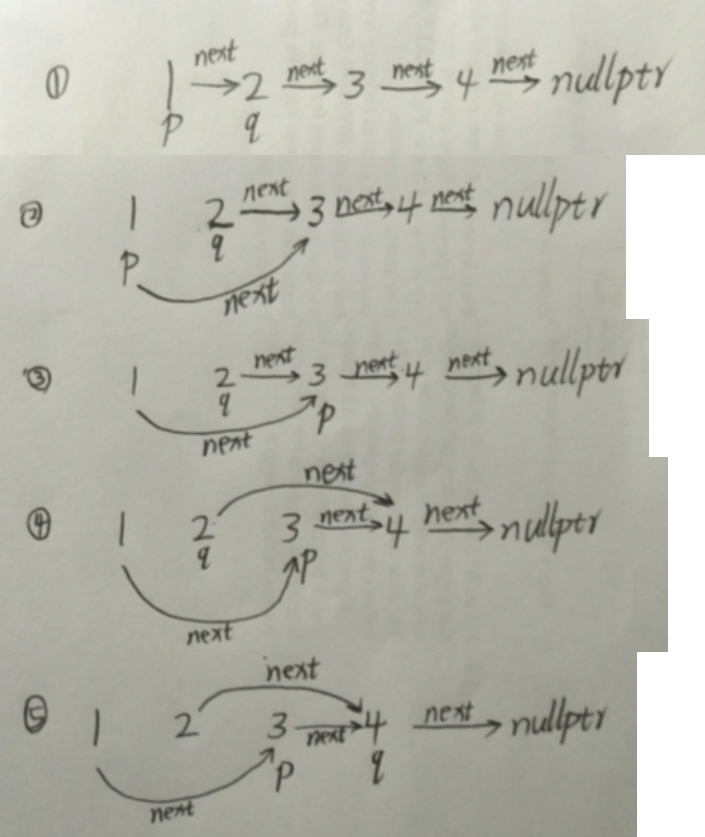 ① 1 next 2 next 3 next 4 next nullptr
p q
② 1 2 next 3 next 4 next nullptr
p q
next
③ 1 2 next 3 next 4 next nullptr
q p
next
next
④ 1 2 3 next 4 next nullptr
q p
next
next
⑤ 1 2 3 next 4 next nullptr
p q
next